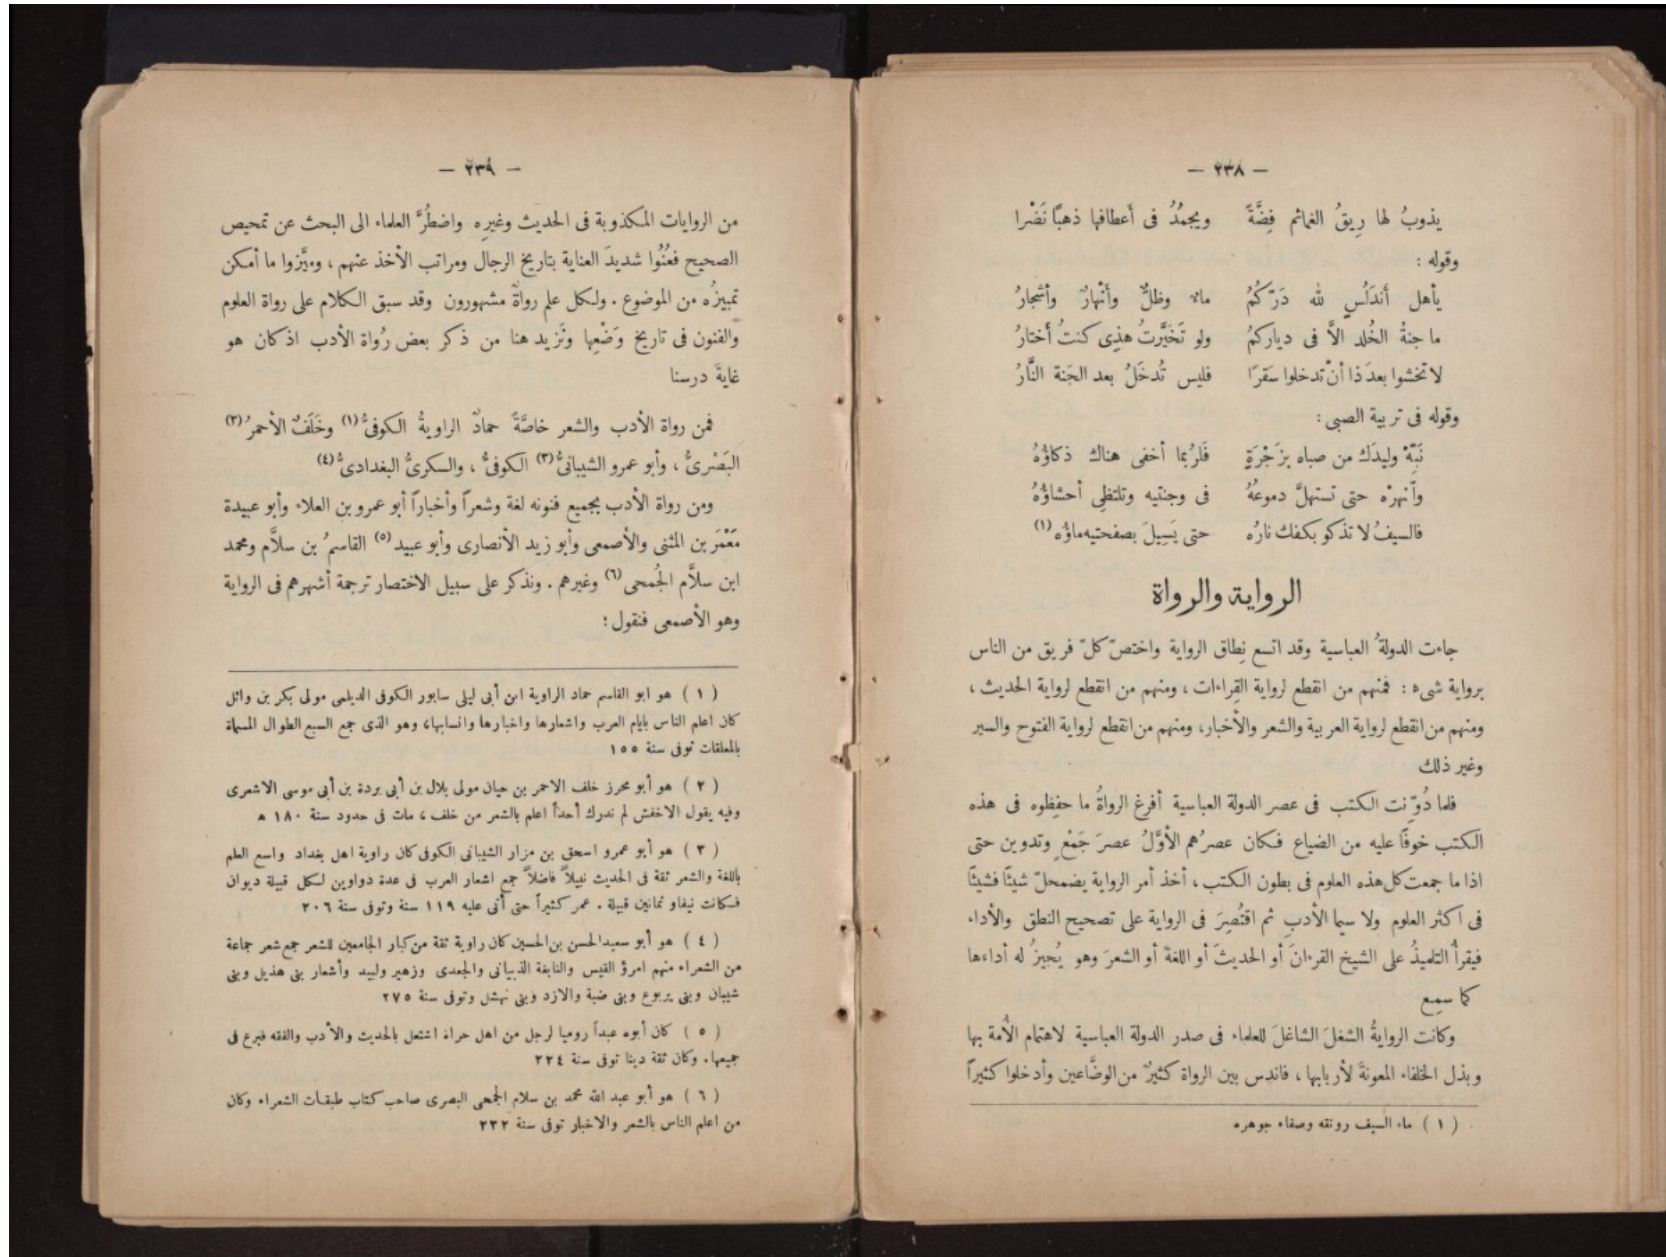 — ٢٣٨ —
يذوبُ لها رِيقُ الغمائم فِضَّةً ويجمُدُ فى أَعطافها ذهبًا نَضْرا
وقوله :
يأهل أندَلُسٍ لله دَرّكُمُ ماءٌ وظلٌّ وأنْهارٌ وأشجارُ
ما جنةُ الخُلد الاَّ فى دياركمُ ولو تَخَيَّرتُ هذِى كنتُ أختارُ
لا تخشوا بعدَ ذا أنْ تدخلوا سَقرًا فليس تُدخَلُ بعد الجَنة النَّارُ
وقوله فى تربية الصبى :
نَبِّهْ وليدَك من صباه بزَجْرَةٍ فَلرُبما أخفى هناك ذكاؤُهُ
وٱنهرْه حتى تستهلَّ دموعُهُ فى وجنتيه وتلتظِى أحشاؤُهُ
فالسيفُ لا تذكو بكفك نارُه حتى يَسِيلَ بصفحتيه ماؤُه (١)
الرواية والرواة
جاءت الدولةُ العباسية وقد اتسع نِطاق الرواية واختصّ كلّ فريق من الناس
برواية شىء : فمنهم من انقطع لرواية القِراءات ، ومنهم من انقطع لرواية الحديث ،
ومنهم من انقطع لرواية العربية والشعر والأخبار، ومنهم من انقطع لرواية الفتوح والسير
وغير ذلك
فلما دُوّنت الكتب فى عصر الدولة العباسية أفرغ الرواةُ ما حفِظوه فى هذه
الكتب خوفًا عليه من الضياع فكان عصرُهم الأوَّلُ عصرَ جَمْعٍ وتدوين حتى
اذا ما جمعت كل هذه العلوم فى بطون الكتب ، أخذ أمر الرواية يضمحلّ شيئًا فشيئًا
فى اكثر العلوم ولا سيما الأدبِ ثم اقتُصِرَ فى الرواية على تصحيح النطق والأداء
فيقرأُ التلميذُ على الشيخ القرءانَ أو الحديثَ أو اللغةَ أو الشعرَ وهو يُجيزُ له أداءها
كما سمِع
وكانت الروايةُ الشغلَ الشاغلَ للعلماء فى صدر الدولة العباسية لاهتمام الأمة بها
وبذل الخلفاء المعونةَ لأربابها ، فاندس بين الرواة كثيرٌ من الوضَّاعين وأدخلوا كثيراً
( ١ ) ماء السيف رونقه وصفاء جوهره
— ٢٣٩ —
من الروايات المكذوبة فى الحديث وغيرِه واضطُرَّ العلماء الى البحث عن تمحيص
الصحيح فعُنُوا شديدَ العناية بتاريخ الرجال ومراتب الأخذ عنهم ، وميَّزوا ما أمكن
تمييزُه من الموضوع . ولكل علم رواةٌ مشهورون وقد سبق الكلام على رواة العلوم
والفنون فى تاريخ وَضْعِها ونَزيد هنا من ذكر بعض رُواة الأدب اذ كان هو
غايةَ درسنا
فمن رواة الأدب والشعر خاصَّةً حمادٌ الراويةُ الكوفىُّ (١) وخَلَفٌ الأحمرُ (٢)
البَصْرىُّ ، وأبو عمرو الشيبانىُّ (٣) الكوفىُّ ، والسكرىُّ البغدادىُّ (٤)
ومن رواة الأدب بجميع فنونه لغة وشعراً وأخباراً أبو عمرو بن العلاء وأبو عبيدة
مَعْمَر بن المثنى والأصمعى وأبو زيد الأنصارى وأبو عبيد (٥) القاسمُ بن سلاَّم ومحمد
ابن سلاَّم الجُمحى (٦) وغيرهم . ونذكر على سبيل الاختصار ترجمة أشهرهم فى الرواية
وهو الأصمعى فنقول :
( ١ ) هو ابو القاسم حماد الراوية ابن أبى ليلى سابور الكوفى الديلمى مولى بكر بن وائل
كان اعلم الناس بايام العرب واشعارها واخبارها وانسابها، وهو الذى جمع السبع الطوال المسماة
بالمعلقات توفى سنة ١٥٥
( ٢ ) هو أبو محرز خلف الاحمر بن حيان مولى بلال بن أبى بردة بن أبى موسى الاشعرى
وفيه يقول الاخفش لم ندرك أحداً اعلم بالشعر من خلف ، مات فى حدود سنة ١٨٠ ه
( ٣ ) هو أبو عمرو اسحق بن مزار الشيبانى الكوفى كان راوية اهل بغداد واسع العلم
باللغة والشعر ثقة فى الحديث نبيلاً فاضلاً جمع اشعار العرب فى عدة دواوين لكل قبيلة ديوان
فكانت نيفاو ثمانين قبيلة . عمر كثيراً حتى أتى عليه ١١٩ سنة وتوفى سنة ٢٠٦
( ٤ ) هو أبو سعيد الحسن بن الحسين كان راوية ثقة من كبار الجامعين للشعر جمع شعر جماعة
من الشعراء منهم امرؤ القيس والنابغة الذبيانى والجعدى وزهير ولبيد وأشعار بنى هذيل وبنى
شيبان وبنى يربوع وبنى ضبة والازد وبنى نهشل وتوفى سنة ٢٧٥
( ٥ ) كان أبوه عبداً روميا لرجل من اهل حراة اشتغل بالحديث والأدب والفقه فبرع فى
جميعها. وكان ثقة دينا توفى سنة ٢٢٤
( ٦ ) هو أبو عبد الله محمد بن سلام الجمحى البصرى صاحب كتاب طبقات الشعراء وكان
من اعلم الناس بالشعر والاخبار توفى سنة ٢٣٢